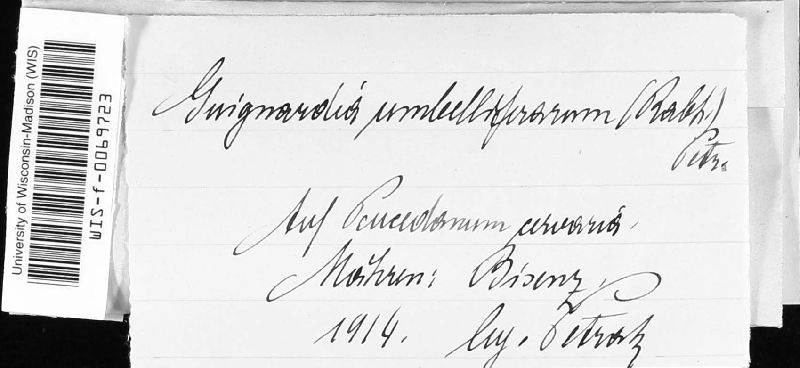 University of Wisconsin-Madison (WIS)
WIS-f-0069723
Guignardia umbelliferarum (Rabh.)
Petr.
Auf Peucedanum cervaria.
Mähren: Bisenz,
1914. leg. Petrak